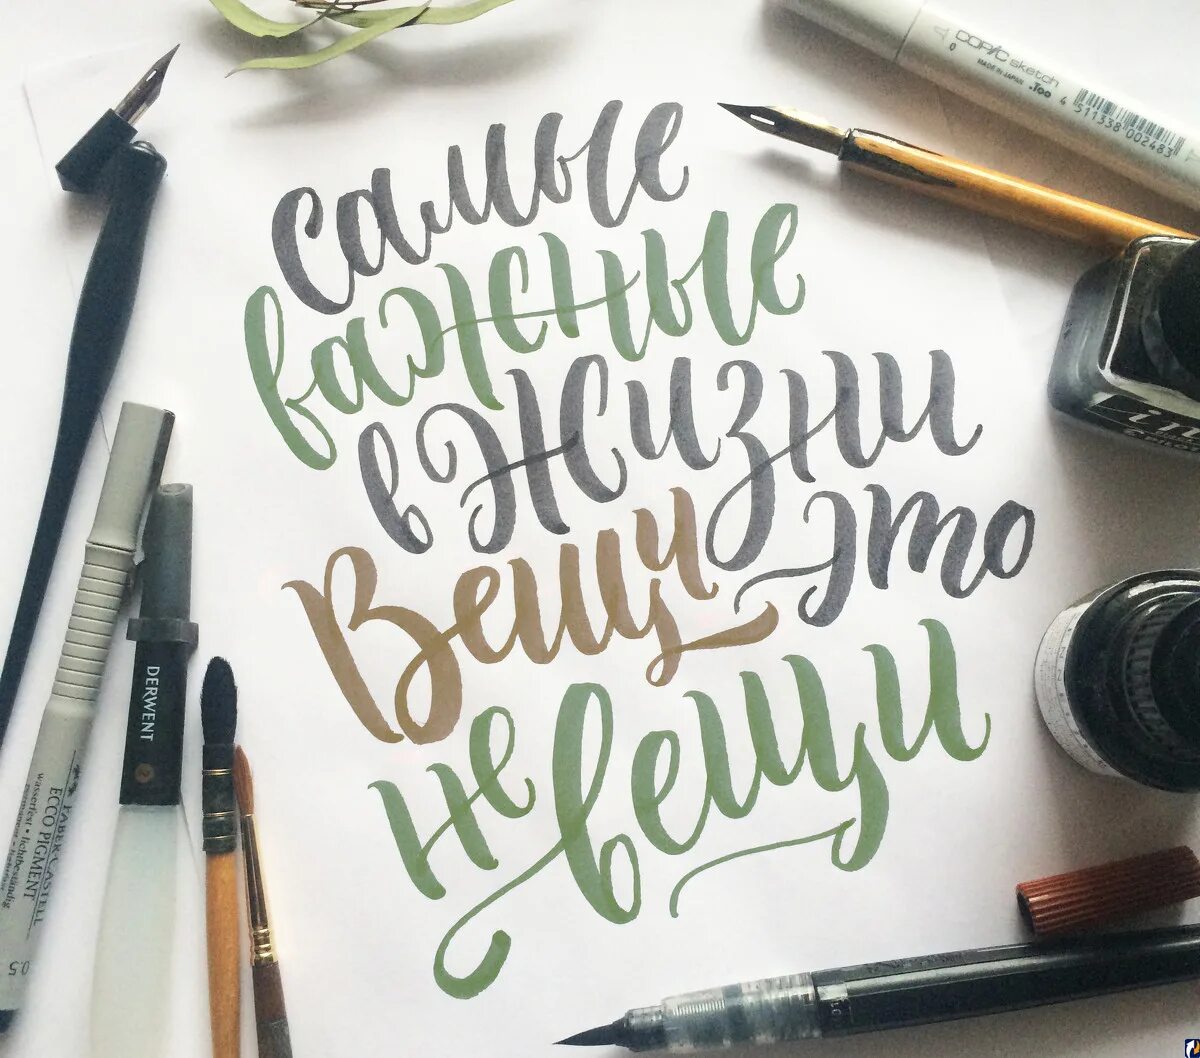 самые
важные
в жизни
Вещи это
не вещи
COPIC sketch
0
MADE IN JAPAN .Too
4 511338 002483
DERWENT
2
FABER-CASTELL
ECCO PIGMENT
wasserfest • lichtbeständig
0.5